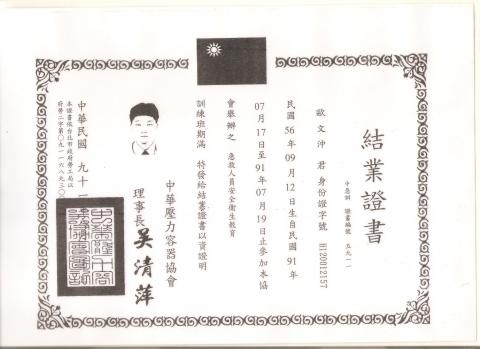 結業證書
中急訓 證書編號 五九一一
歐文沖 君身份證字號 H120012157
民國 56 年 09 月 12 日生自民國 91 年
07 月 17 日至 91 年 07 月 19 日止參加本協
會舉辦之 急救人員安全衛生教育
訓練班期滿 特發給結業證書以資證明
中華壓力容器協會
理事長 吳清萍
中華民國 九十一
本證書依台北市政府勞工局以
府勞二字第○九一一六八九三○